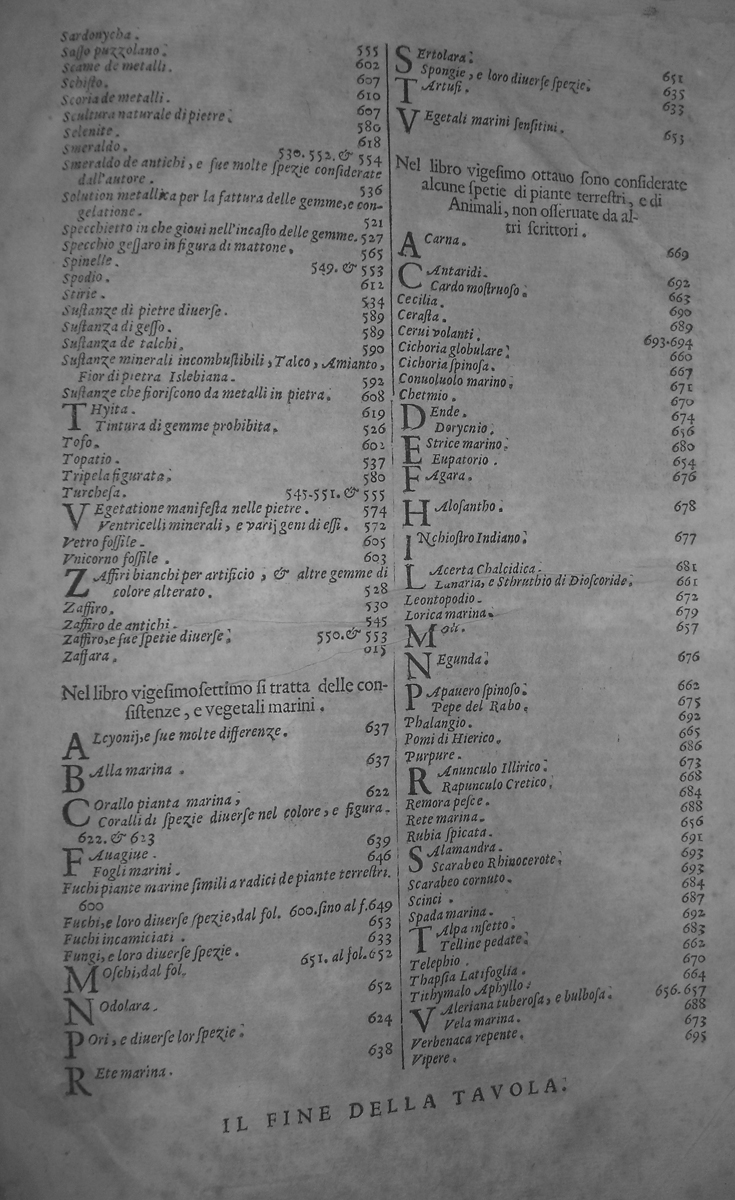 Sardonycha.
Saſſo puzzolano. 555
Scame de metalli. 602
Schiſto. 607
Scoria de metalli. 610
Scultura naturale di pietre. 607
Selenite. 580
Smeraldo. 618
Smeraldo de antichi, e ſue molte ſpezie conſiderate 530. 552. & 554
dall'autore.
Solution metallica per la fattura delle gemme, e con- 536
gelatione.
Specchietto in che gioui nell'incaſto delle gemme. 527 521
Specchio geſſaro in figura di mattone. 565
Spinelle. 549. & 553
Spodio. 612
Stirie. 534
Suſtanze di pietre diuerſe. 589
Suſtanza di geſſo. 589
Suſtanza de talchi. 590
Suſtanze minerali incombuſtibili, Talco, Amianto,
Fior di pietra Islebiana. 592
Suſtanze che fioriſcono da metalli in pietra. 608
THyita. 619
Tintura di gemme prohibita. 526
Tofo. 602
Topatio. 537
Tripela figurata. 580
Turcheſa. 545-551. & 555
VEgetatione manifeſta nelle pietre. 574
Ventricelli minerali, e varij geni di eſſi. 572
Vetro foſſile. 605
Vnicorno foſſile. 603
ZAffiri bianchi per artificio, & altre gemme di
colore alterato. 528
Zaffiro. 530
Zaffiro de antichi. 545
Zaffiro, e ſue ſpetie diuerſe. 550. & 553
Zaffara. 615
Nel libro vigeſimoſettimo ſi tratta delle con-
ſiſtenze, e vegetali marini.
ALcyonij, e ſue molte differenze. 637
BAlla marina. 637
COrallo pianta marina, 622
Coralli di ſpezie diuerſe nel colore, e figura.
622. & 623
FAuagiue. 639
Fogli marini. 646
Fuchi piante marine ſimili a radici de piante terreſtri.
600
Fuchi, e loro diuerſe ſpezie, dal fol. 600. ſino al f. 649
Fuchi incamiciati. 653
Fungi, e loro diuerſe ſpezie. 633
MOſchi, dal fol. 651. al fol. 652
NOdolara. 652
POri, e diuerſe lor ſpezie. 624
REte marina. 638
SErtolara. 651
Spongie, e loro diuerſe ſpezie. 635
TArtufi. 633
VEgetali marini ſenſitiui. 653
Nel libro vigeſimo ottauo ſono conſiderate
alcune ſpetie di piante terreſtri, e di
Animali, non oſſeruate da al-
tri ſcrittori.
ACarna. 669
CAntaridi. 692
Cardo moſtruoſo. 663
Cecilia. 690
Ceraſta. 689
Cerui volanti. 693.694
Cichoria globulare. 660
Cichoria ſpinoſa. 667
Conuoluolo marino. 671
Chetmio. 670
DEnde. 674
Dorycnio. 656
EStrice marino. 680
Eupatorio. 654
FAgara. 676
HAloſantho. 678
INchioſtro Indiano. 677
LAcerta Chalcidica. 681
Lunaria, e Sthruthio di Dioſcoride. 661
Leontopodio. 672
Lorica marina. 679
MOli. 657
NEgunda. 676
PApauero ſpinoſo. 662
Pepe del Rabo. 675
Phalangio. 692
Pomi di Hierico. 665
Purpure. 686
RAnunculo Illirico. 673
Rapunculo Cretico. 668
Remora peſce. 684
Rete marina. 688
Rubia ſpicata. 656
SAlamandra. 691
Scarabeo Rhinocerote. 693
Scarabeo cornuto. 693
Scinci. 684
Spada marina. 687
TAlpa inſetto. 692
Telline pedate. 683
Telephio. 662
Thapſia Latifoglia. 670
Tithymalo Aphyllo. 664
VAleriana tuberoſa, e bulboſa. 656.657
Vela marina. 688
Verbenaca repente. 673
Vipere. 695
IL FINE DELLA TAVOLA.